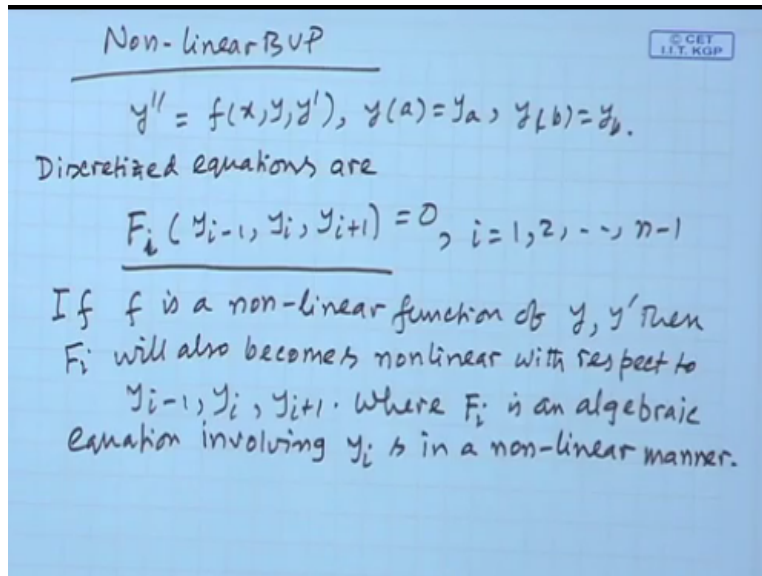 Non-linear BVP
© CET
I.I.T. KGP
y'' = f(x, y, y'), y(a) = ya, y(b) = yb.
Discretized equations are
Fi (yi-1, yi, yi+1) = 0, i = 1, 2, --, n-1
If f is a non-linear function of y, y' then
Fi will also becomes nonlinear with respect to
yi-1, yi, yi+1. Where Fi is an algebraic
equation involving yi s in a non-linear manner.